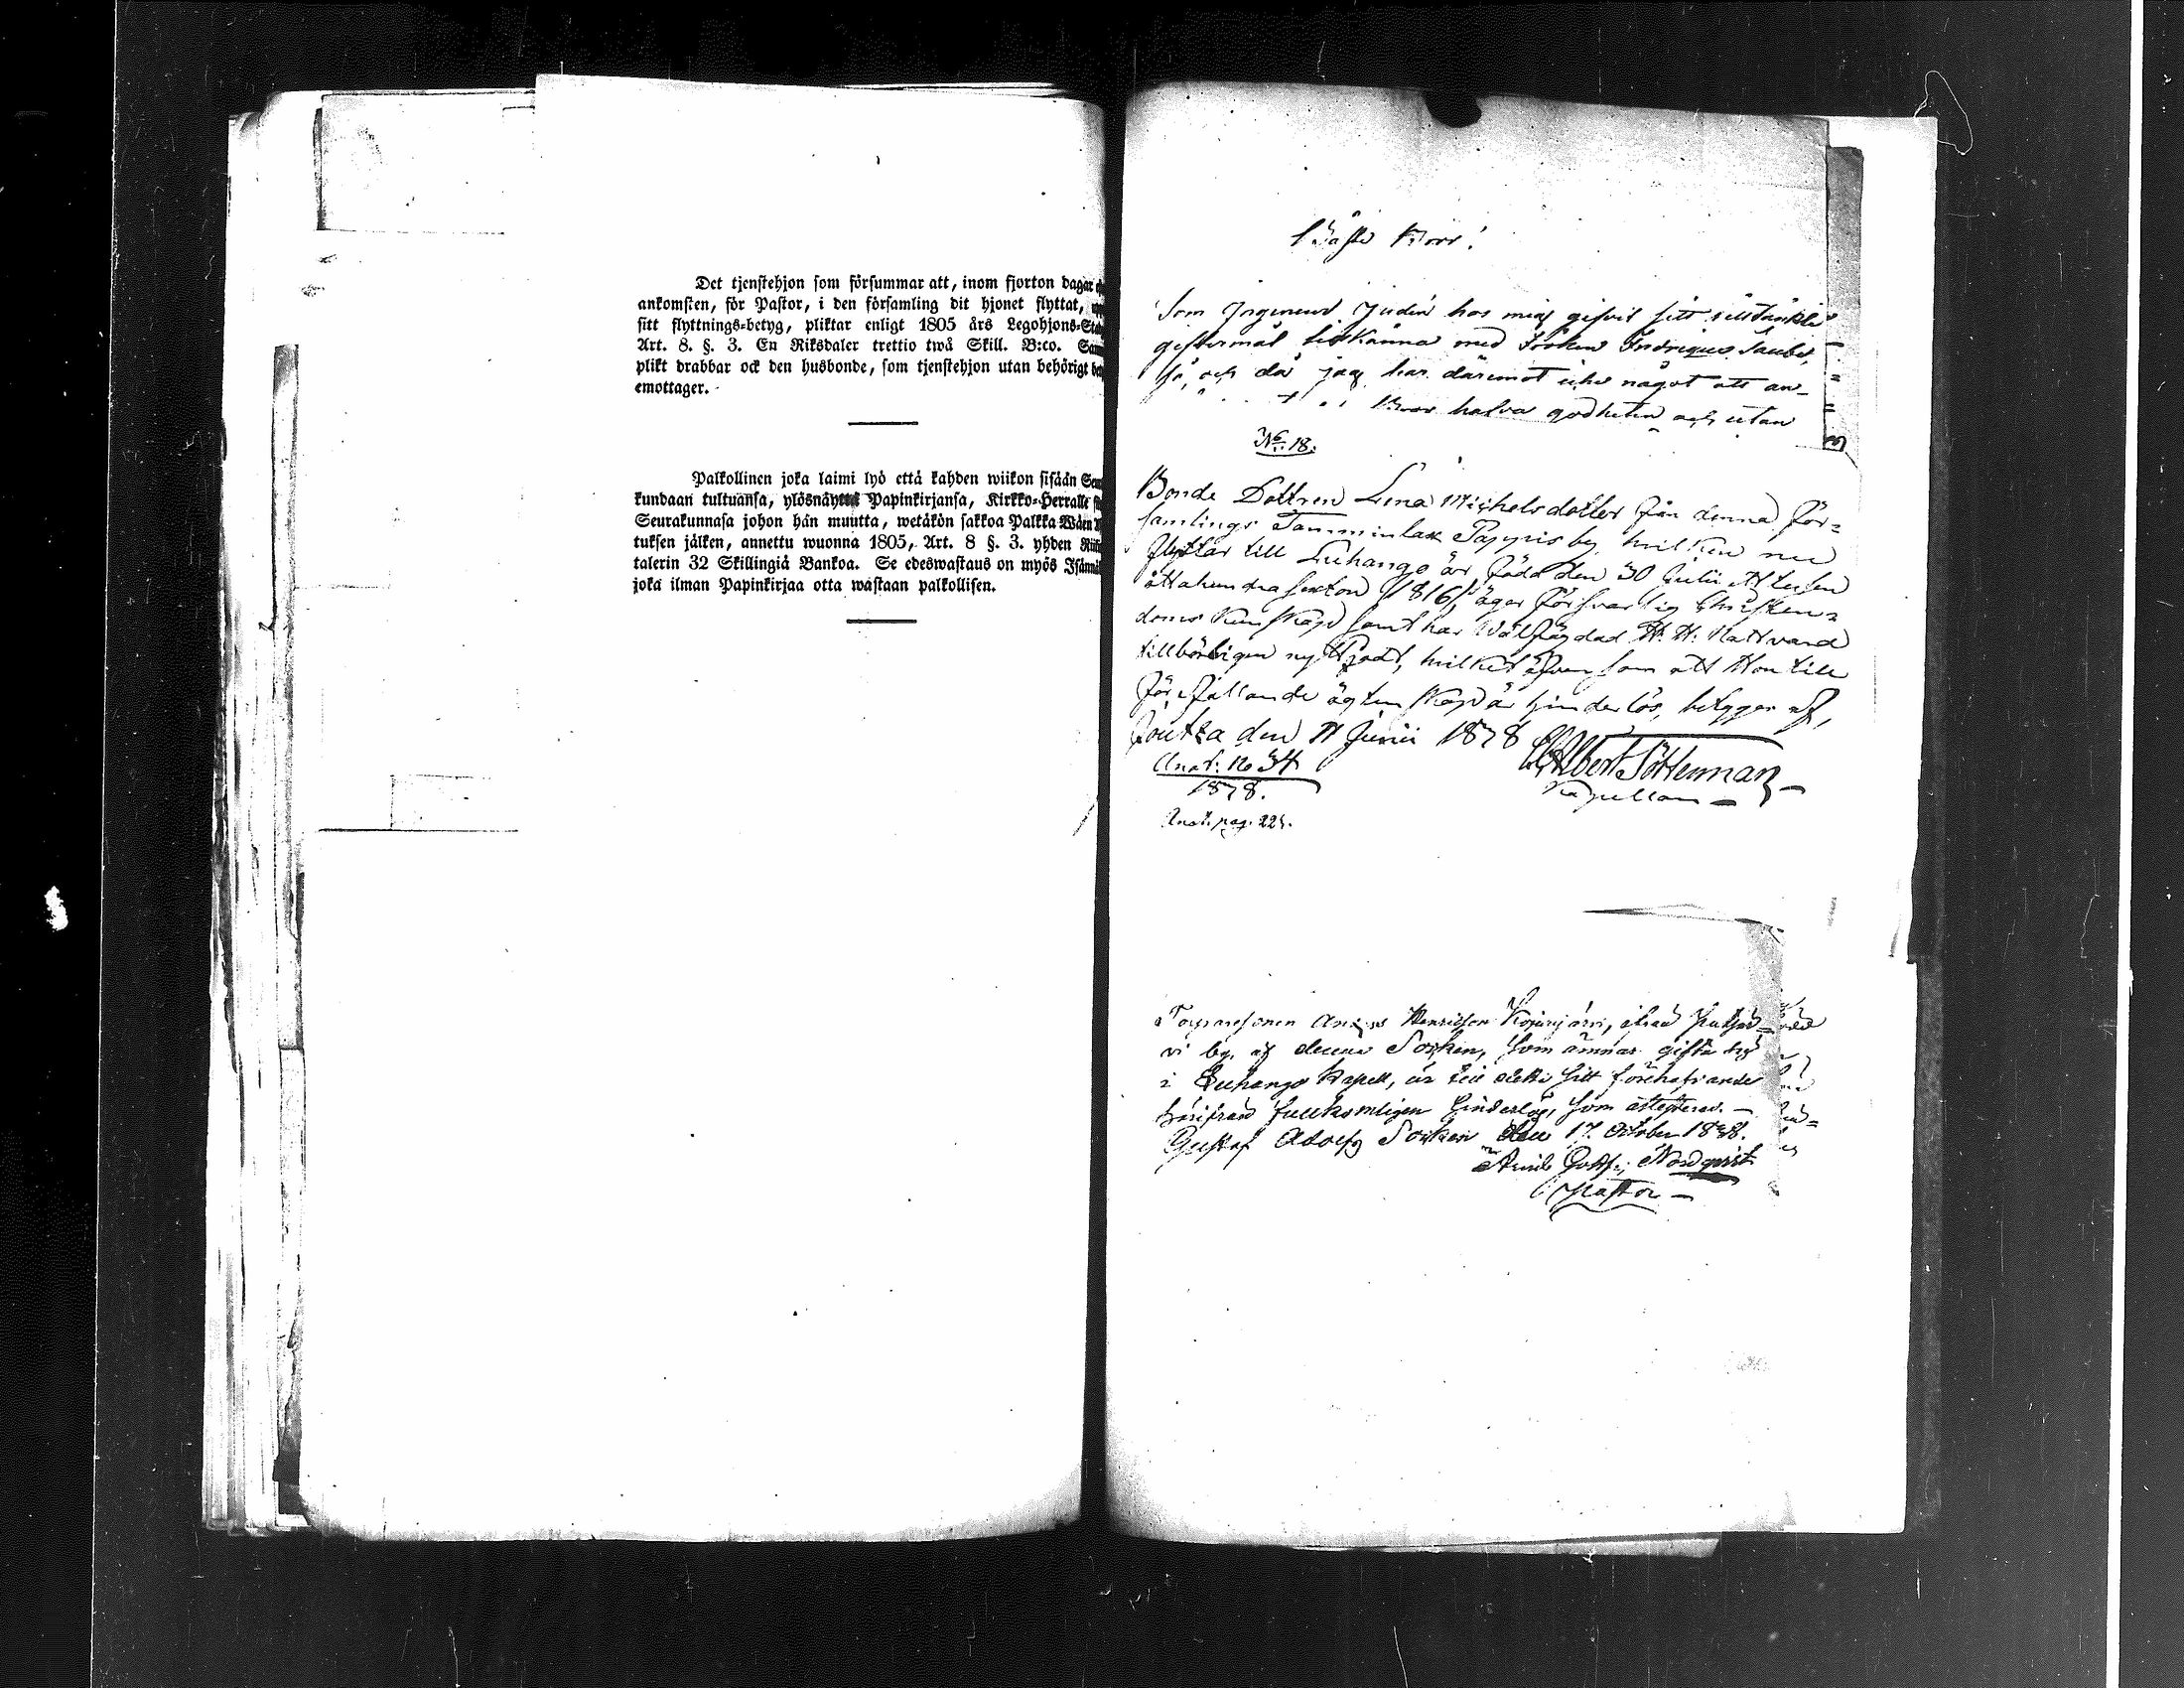 Det tjenstehjon som försummar att, inom fjorton dagar
ankomsten, för Pastor, i den församling dit hjonet flyttat,
sitt flyttnings=betyg, pliktar enligt 1805 års Legohjons=
Art. 8. §. 3. En Riksdaler trettio twå Skill. B:co.
plikt drabbar ock den husbonde, som tjenstehjon utan behörigt
emottager.
Palkollinen joka laimi lyö että kahden wiikon sisään
kundaan tultuansa, ylösnäyttä Papinkirjansa, Kirkko=Herralle
Seurakunnasa johon hän muutta, wetäkön sakkoa Palkka Wäen
tuksen jälken, annettu wuonna 1805, Art. 8 §. 3. yhden
talerin 32 Skillingiä Bankoa. Se edeswastaus on myös
joka ilman Papinkirjaa otta wastaan palkollisen.
Bäste Bror!
Som Ingenieur Judén hos mig gifvit sitt tilltänkte
giftermål tillkänna med Fröken
så, och då jag har däremot icke något att an-
Bror hafva godheten och utan
No 18.
Bonde Dottren Lena Michelsdotter från denna För=
samlings Tammimlax Pappis by, hvilken nu
flyttar till Luhango är född den 30 Julii Ett tusen
åttahundra sexton /1816/, äger försvarlig Christen=
doms Kunskap samt har Wälfrägdad H. H. Nattvard
tillbörligen nyttjadt, hvilket äfven som att Hon till
förefallande ägtenskap är hinderlös, betygar af,
Joutza den 11 Junii 1838
Albert Sötterman
Kapellan
Anot: No 34
1838.
Anot. pag. 221.
Torparesonen Anders Henricson Kojinjärvi, ifrån
vi by, af denna Sochen, som ämnar gifta sig
i Luhango Kapell, är till detta sitt förehafvande
härifrån fullkomligen hinderlös, som attesteras.
Gustaf Adolfs Sochen den 17. October 1838.
Nordqvist
Pastor